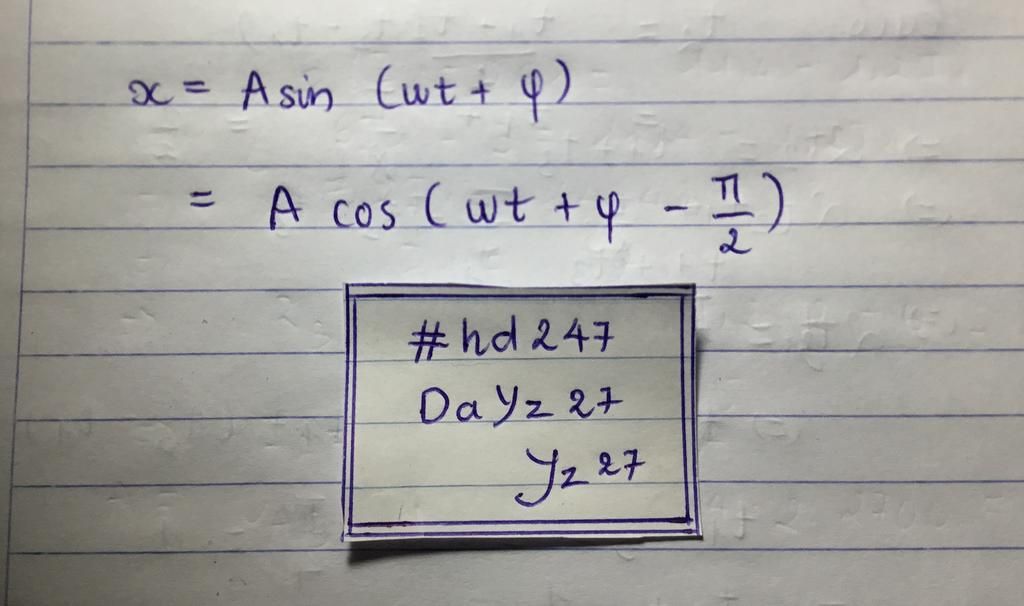 x = A sin (ωt + φ)
= A cos (ωt + φ - π/2)
#hd247
DaYz27
Yz27